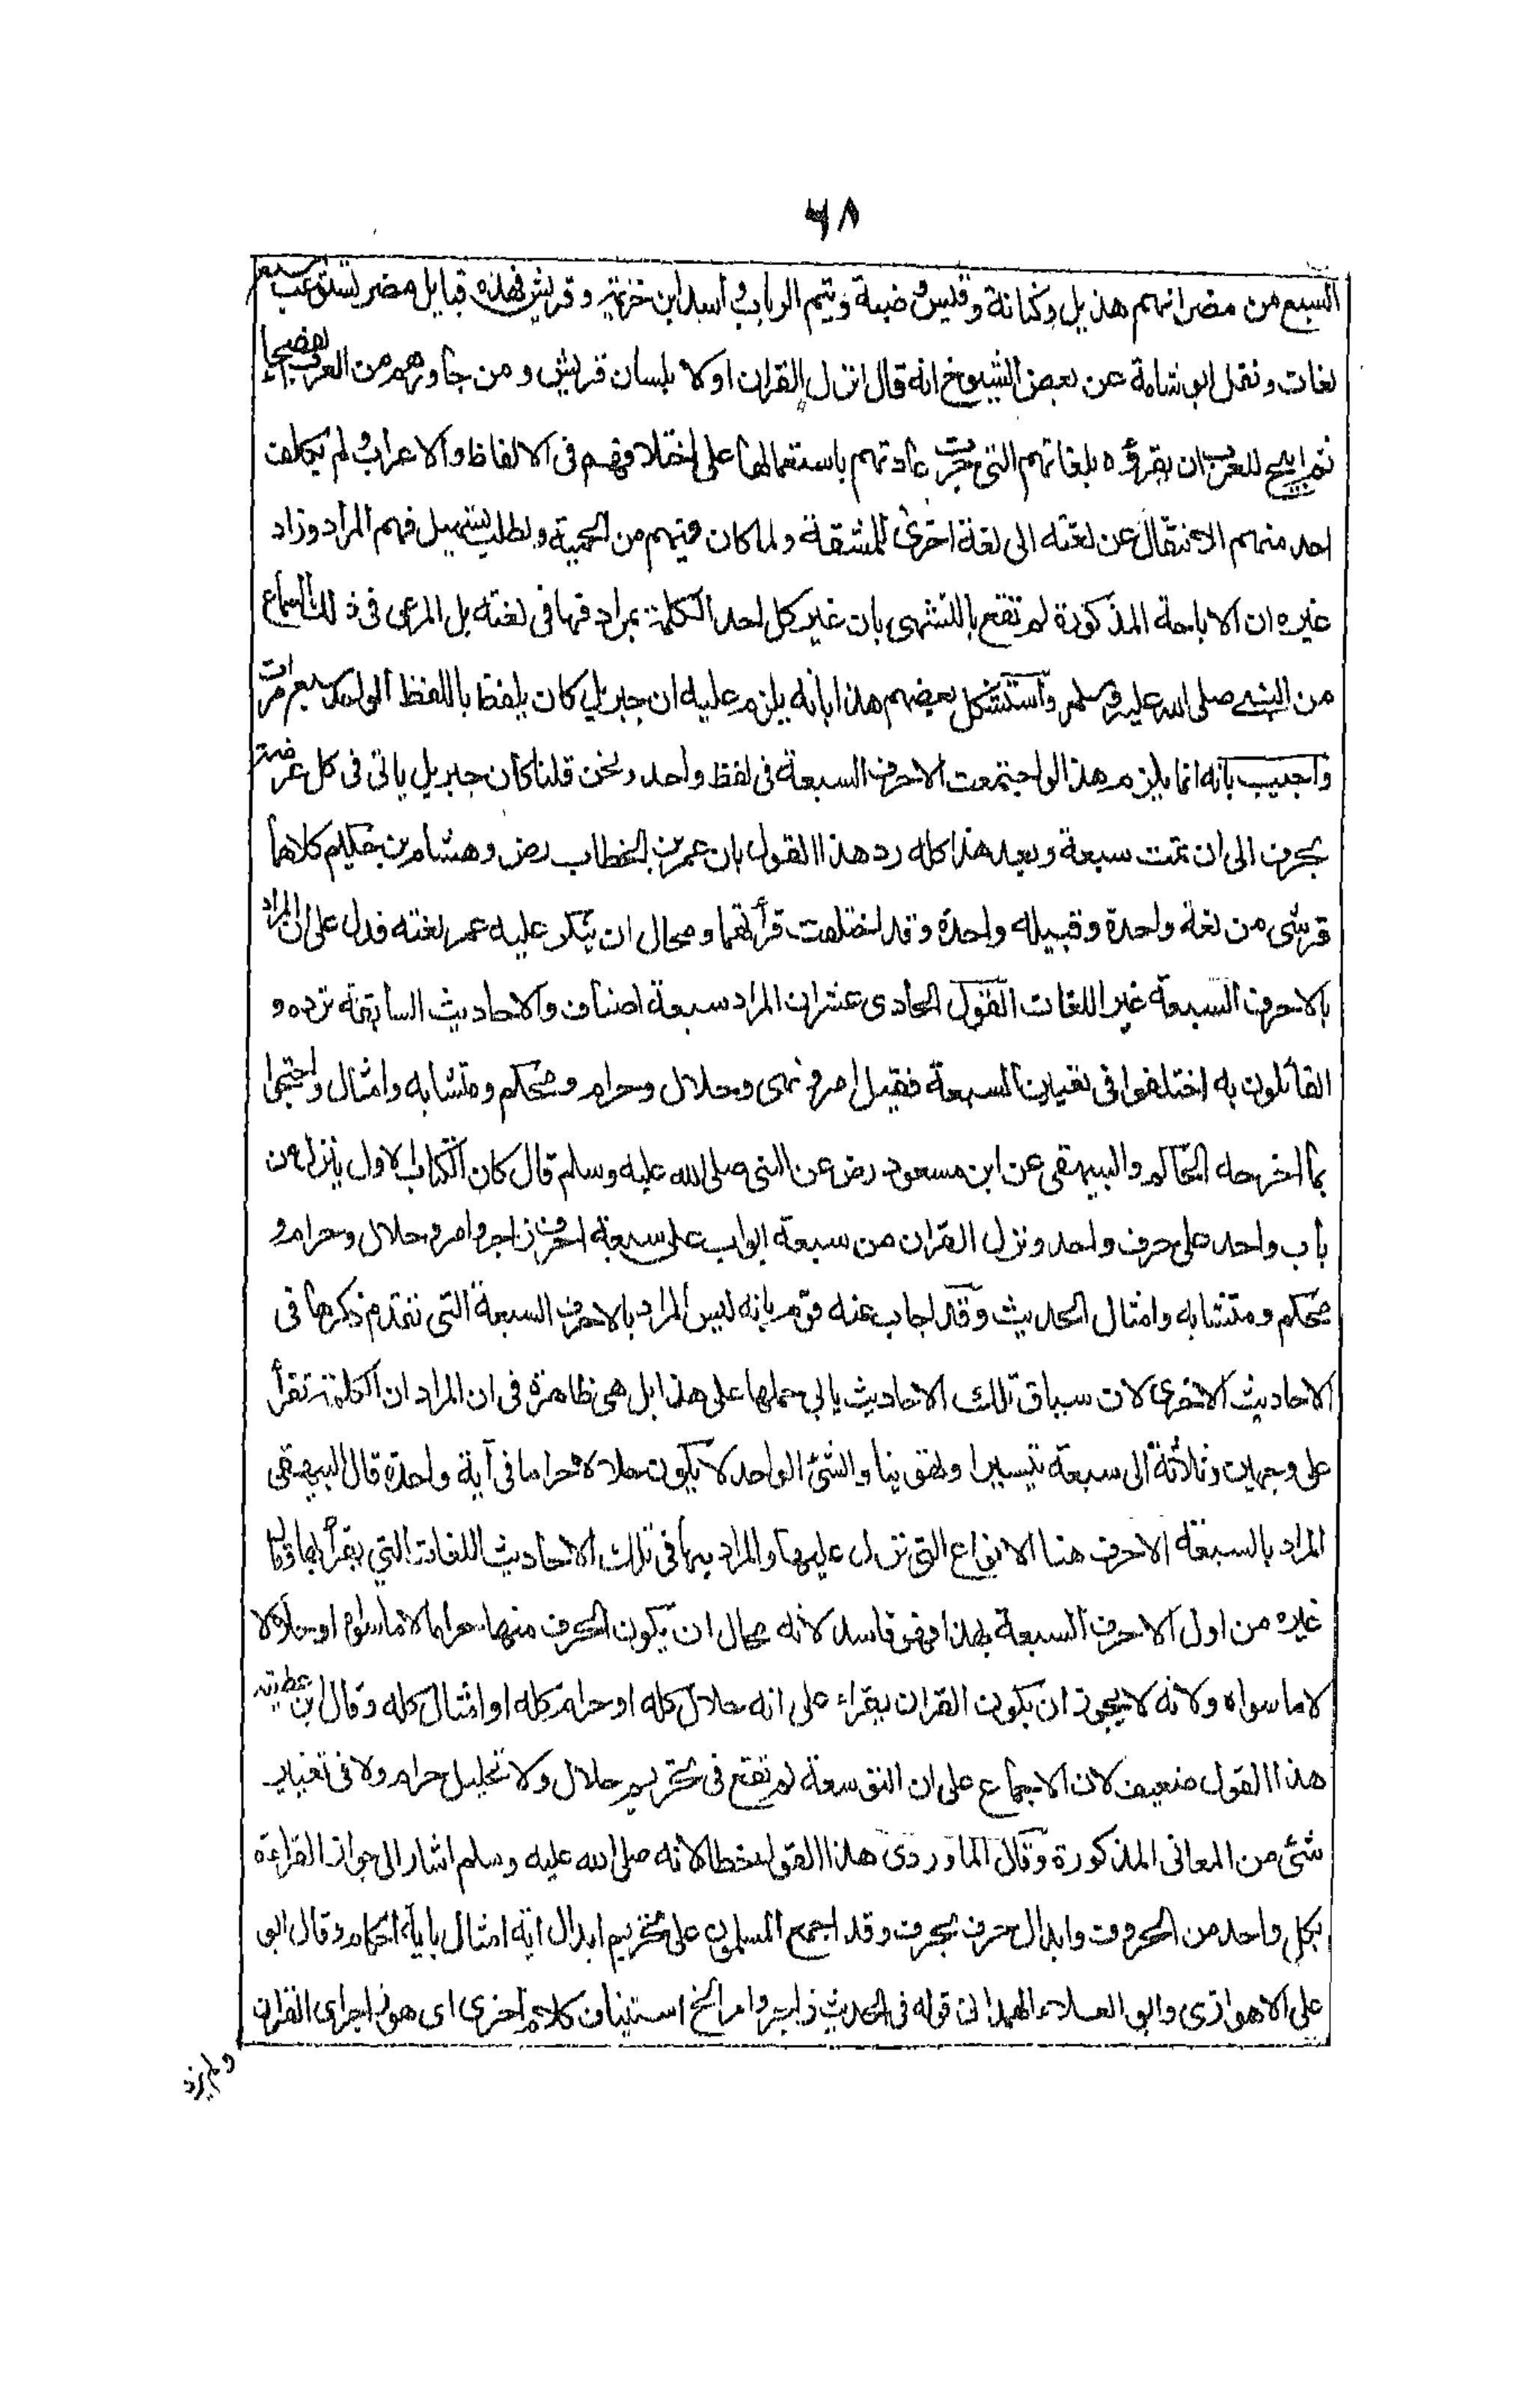 ٦٨
السبع من مضر انهم هذيل وكنانة وقيس وضبة وتيم الرباب و اسد ابن خزيمة وقريش فهذه قبايل مضر تستوعب سبع
لغات ونقل ابو شامة عن بعض الشيوخ انه قال انزل القران اولا بلسان قريش ومن جاورهم من العرب الفصحاء
ثم ابيح للعرب ان يقرؤه بلغاتهم التى جرت عادتهم باستعمالها على اختلافهم فى الالفاظ والاعراب ولم يكلف
احد منهم الانتقال عن لغته الى لغة اخرى للمشقة ولما كان فيهم من الحمية ولطلب تسهيل فهم المراد وزاد
غيره ان الاباحة المذكورة لم تقع بالتشهى بان غير كل احد الكلمة بمرادفها فى لغته بل المرعى فى ذلك السماع
من النبى صلى الله عليه وسلم واستشكل بعضهم هذا بانه يلزم عليه ان جبريل كان يلفظ باللفظ الواحد سبع مرات
واجيب بانه انما يلزم هذا لو اجتمعت الاحرف السبعة فى لفظ واحد ونحن قلنا كان جبريل ياتى فى كل عرضة
بحرف الى ان تمت سبعة وبعد هذا كله رد هذا القول بان عمر بن الخطاب رض وهشام بن حكيم كلاهما
قرشى من لغة واحدة وقبيله واحدة وقد اختلفت قرأتهما ومحال ان ينكر عليه عمر لغته فدل على ان المراد
بالاحرف السبعة غير اللغات القول الحادى عشر ان المراد سبعة اصناف والاحاديث السابقة ترده و
القائلون به اختلفوا فى تعيين السبعة فقيل امر ونهى وحلال وحرام ومحكم ومتشابه وامثال واحتجوا
بما اخرجه الحاكم والبيهقى عن ابن مسعود رض عن النبى صلى الله عليه وسلم قال كان الكتاب الاول ينزل من
باب واحد على حرف واحد ونزل القران من سبعة ابواب على سبعة احرف زاجر وامر وحلال وحرام و
محكم ومتشابه وامثال الحديث وقد اجاب عنه قوم بانه ليس المراد بالاحرف السبعة التى تقدم ذكرها فى
الاحاديث الاخرى لان سياق تلك الاحاديث يابى حملها على هذا بل هى ظاهرة فى ان المراد ان الكلمة تقرأ
على وجهين وثلاثة الى سبعة تيسيرا وتهوينا والشئ الواحد لا يكون حلالا وحراما فى آية واحدة قال البيهقى
المراد بالسبعة الاحرف هنا الانواع التى نزل عليها والمراد بها فى تلك الاحاديث اللغات التي يقرأ بها وقال
غيره من اول الاحرف السبعة بهذا فهو فاسد لانه محال ان يكون الحرف منها حراما لا ما سواه او حلالا
لا ما سواه ولانه لا يجوز ان يكون القران يقراء على انه حلال كله او حرام كله او امثال كله وقال ابن عطية
هذا القول ضعيف لان الاجماع على ان التوسعة لم تقع فى تحريم حلال ولا تحليل حرام ولا فى تغيير
شئ من المعانى المذكورة وقال الماوردى هذا القول خطا لانه صلى الله عليه وسلم اشار الى جواز القراءة
بكل واحد من الحروف وابدال حرف بحرف وقد اجمع المسلمون على تحريم ابدال اية امثال باية احكام وقال ابو
على الاهوازى وابو العلاء الهمدانى قوله فى الحديث زاجر وامر الخ استيناف كلام اخرى اى هو زاجر اى القران
ولم يرد